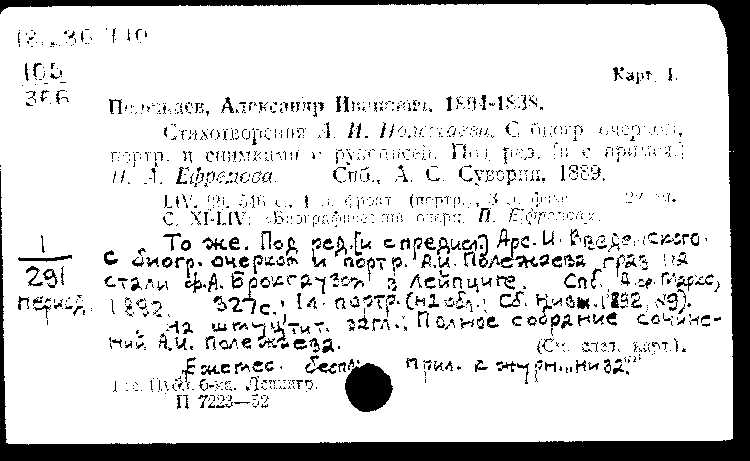 105
366
Карт. 1.
Полежаев, Александр Иванович. 1804-1838.
Стихотворения А. И. Полежаева. С биогр. очерком,
портр. и снимками с рукописей. Под ред. [и с примеч.]
П. А. Ефремова. Спб., А. С. Суворин, 1889.
LIV,
С. XI-LIV: «Биографический очерк П. Ефремова».
1
291
период.
То же. Под ред. [и с предисл.] Арс. И. Введенского
с биогр. очерком и портр. А.И. Полежаева грав на
стали Ф.А. Брокгаузом в Лейпциге. Спб. А.Ф. Маркс,
1892. 327 с.; 1 л. портр. (на обл.: Сб. Нивы. 1892, №9).
На шмуцтит. загл.: Полное собрание сочине-
ний А.И. Полежаева.
(См. след. карт.).
Ежемес. беспл. прил. к журн. „Нива"
Гос. Публ. б-ка. Ленингр.
П 7223—52